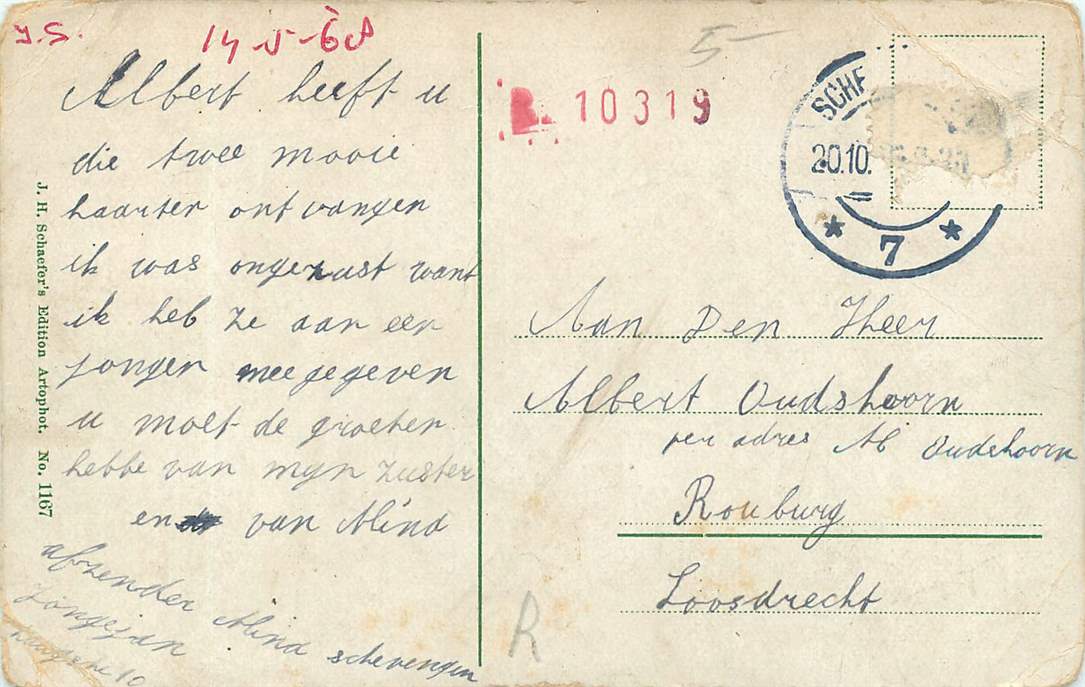 J.S.
14-5-68
5-
Albert heeft u
die twee mooie
kaarten ontvangen
ik was ongerust want
ik heb ze aan een
jongen meegegeven
u moet de groeten
hebbe van mijn zuster
en van Mina
afzender Mina
Jongejan schevengen
10
J. H. Schaefer's Edition Artophot. No. 1167
10319
SCHE
20.10.
* 7 *
Aan Den Heer
Albert Oudshoorn
per adres M Oudshoorn
Rouburg
Loosdrecht
R